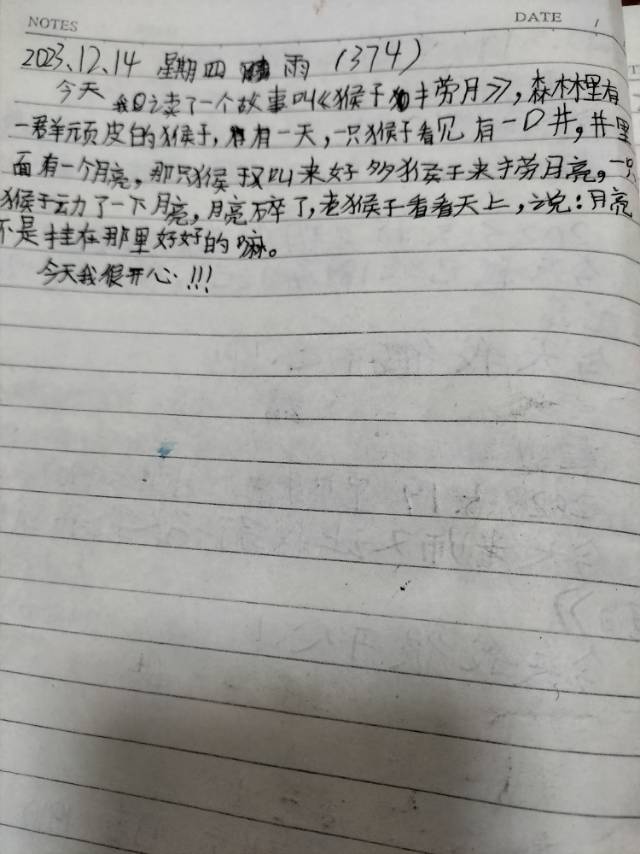 NOTES
DATE
2023.12.14 星期四 雨 (374)
今天 我阅读了一个故事叫《猴子捞月》,森林里有
一群顽皮的猴子,有一天,一只猴子看见有一口井,井里
面有一个月亮,那只猴子叫来好多猴子来捞月亮。一只
猴子动了一下月亮,月亮碎了,老猴子看看天上,说:月亮
不是挂在那里好好的嘛。
今天我很开心!!!